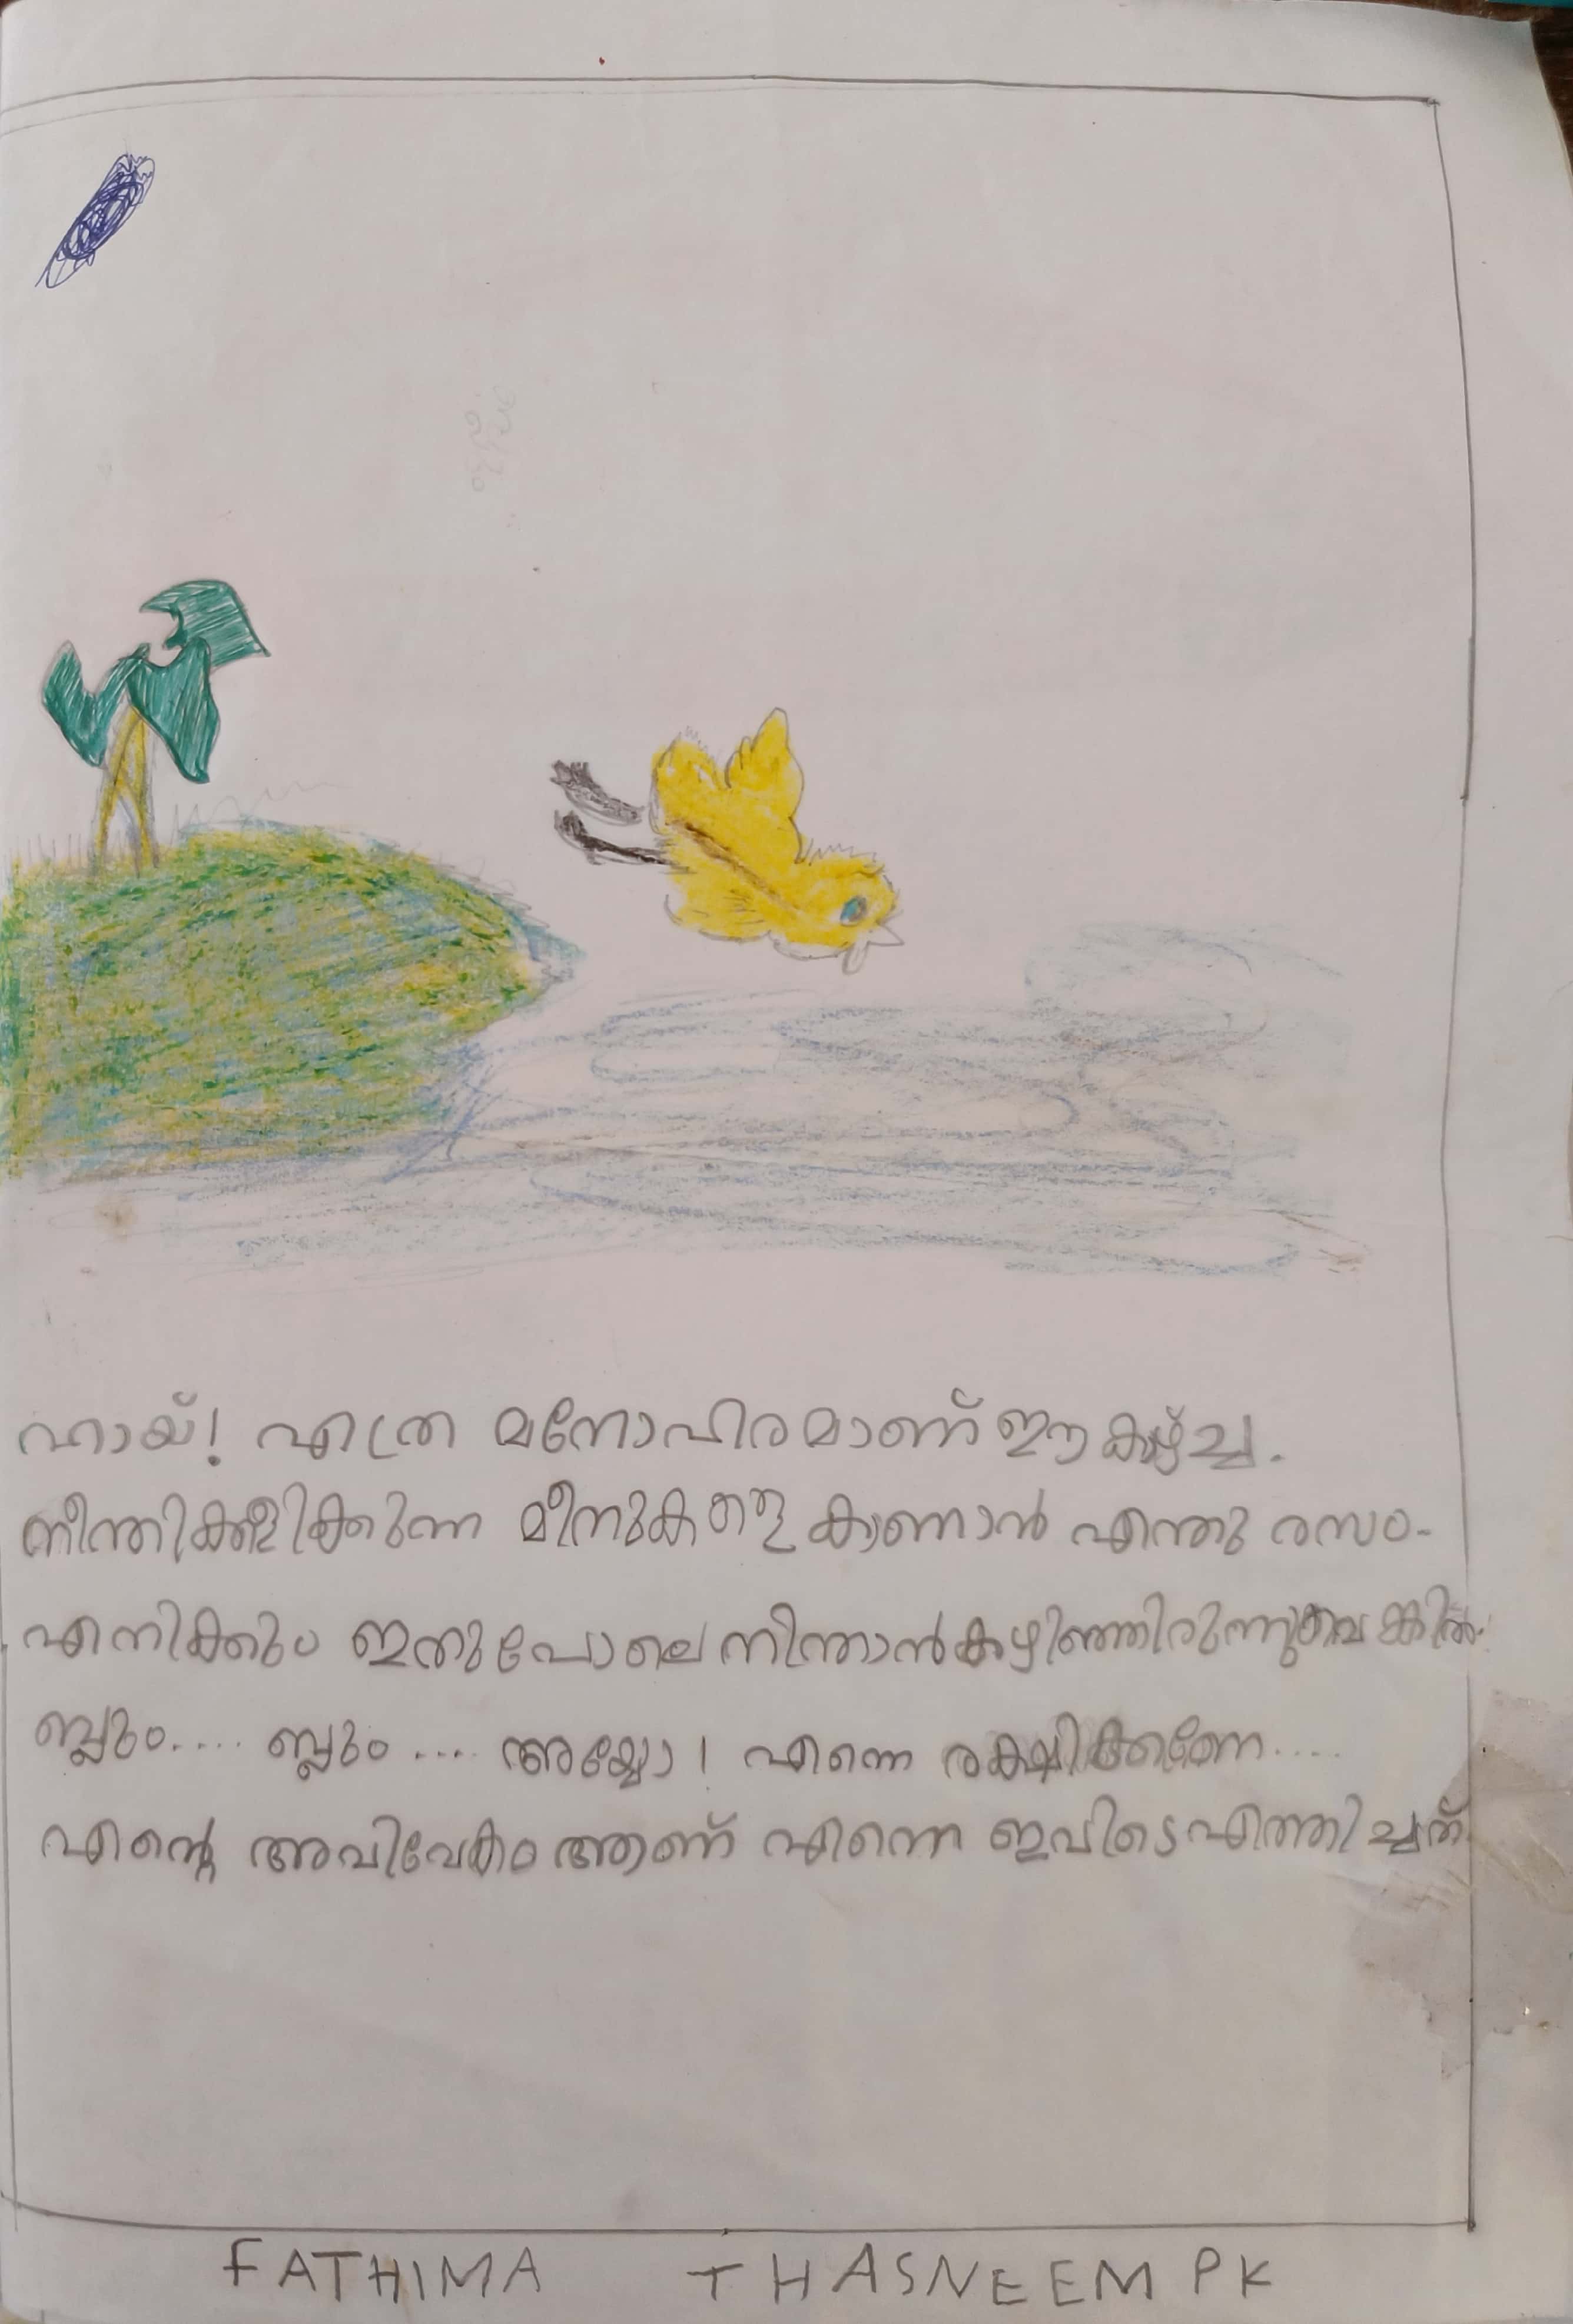 ഹായ്! എത്ര മനോഹരമാണ് ഈ കാഴ്ച്ച.
നീന്തിക്കളിക്കുന്ന മീനുകളെ കാണാൻ എന്തു രസം.
എനിക്കും ഇതുപോലെ നീന്താൻ കഴിഞ്ഞിരുന്നുവെങ്കിൽ.
ബ്ലും.... ബ്ലും .... അയ്യോ! എന്നെ രക്ഷിക്കണേ....
എൻ്റെ അവിവേകം ആണ് എന്നെ ഇവിടെ എത്തിച്ചത്.
FATHIMA THASNEEM PK